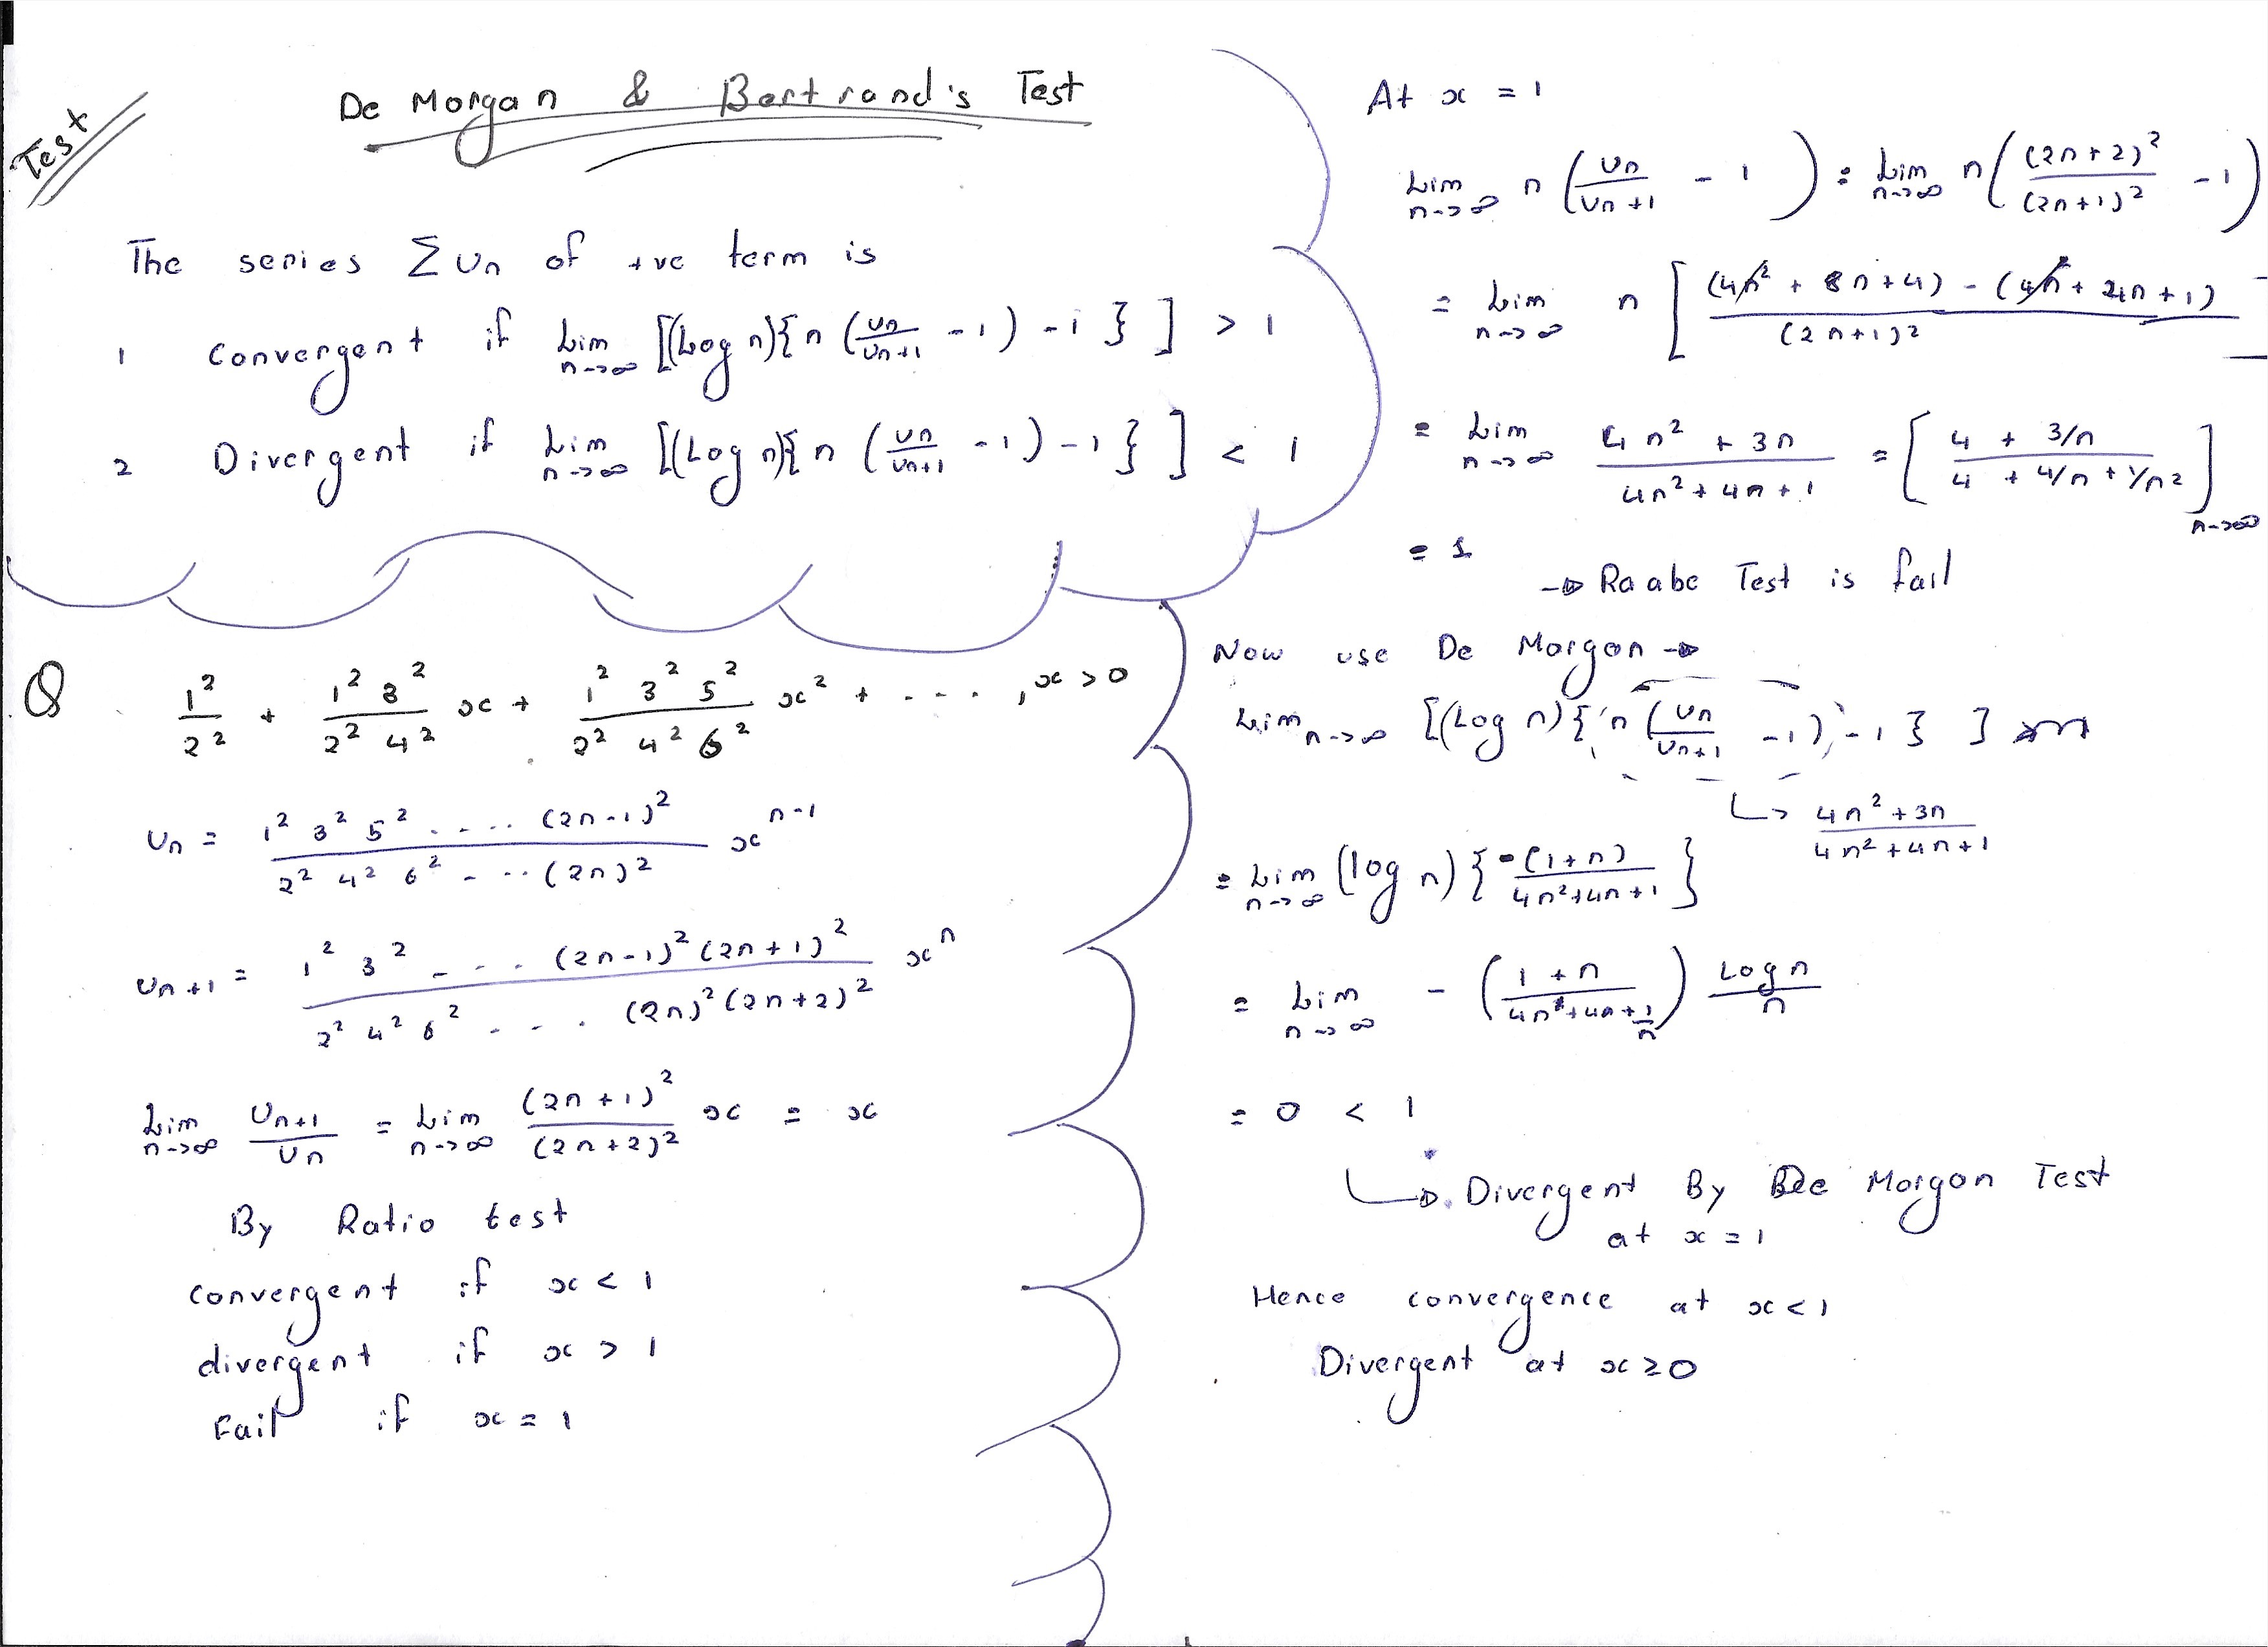 Test
De Morgan & Bertrand's Test
The series Σ Un of +ve term is
1 Convergent if Lim n→∞ [(Log n){n (Un/Un+1 - 1) - 1 } ] > 1
2 Divergent if Lim n→∞ [(Log n){n (Un/Un+1 - 1) - 1 } ] < 1
Q. 1²/2² + 1² 3²/2² 4² x + 1² 3² 5²/2² 4² 6² x² + - - - . , x > 0
Un = 1² 3² 5² . - . . (2n-1)²/2² 4² 6² - - . (2n)² x^n-1
Un+1 = 1² 3² - - - . (2n-1)² (2n+1)²/2² 4² 6² - - - . (2n)² (2n+2)² x^n
Lim n→∞ Un+1/Un = Lim n→∞ (2n+1)²/(2n+2)² x = x
By Ratio test
convergent if x < 1
divergent if x > 1
Fail if x = 1
At x = 1
Lim n→∞ n (Un/Un+1 - 1) = Lim n→∞ n ((2n+2)²/(2n+1)² - 1)
= Lim n→∞ n [(4n² + 8n+4) - (4n² + 4n+1)/(2n+1)²
= Lim n→∞ 4n² + 3n/4n² + 4n + 1 = [4 + 3/n/4 + 4/n + 1/n²] n→∞
= 1
→ Raabe Test is fail
Now use De Morgan →
Lim n→∞ [(Log n) { n (Un/Un+1 - 1) - 1 } ]
↳ 4n² + 3n/4n² + 4n + 1
= Lim n→∞ (log n) { -(1+n)/4n²+4n+1 }
= Lim n→∞ - (1 + n/4n + 4n + 1/n) Log n/n
= 0 < 1
↳ Divergent By De Morgan Test
at x = 1
Hence convergence at x < 1
Divergent at x ≥ 0